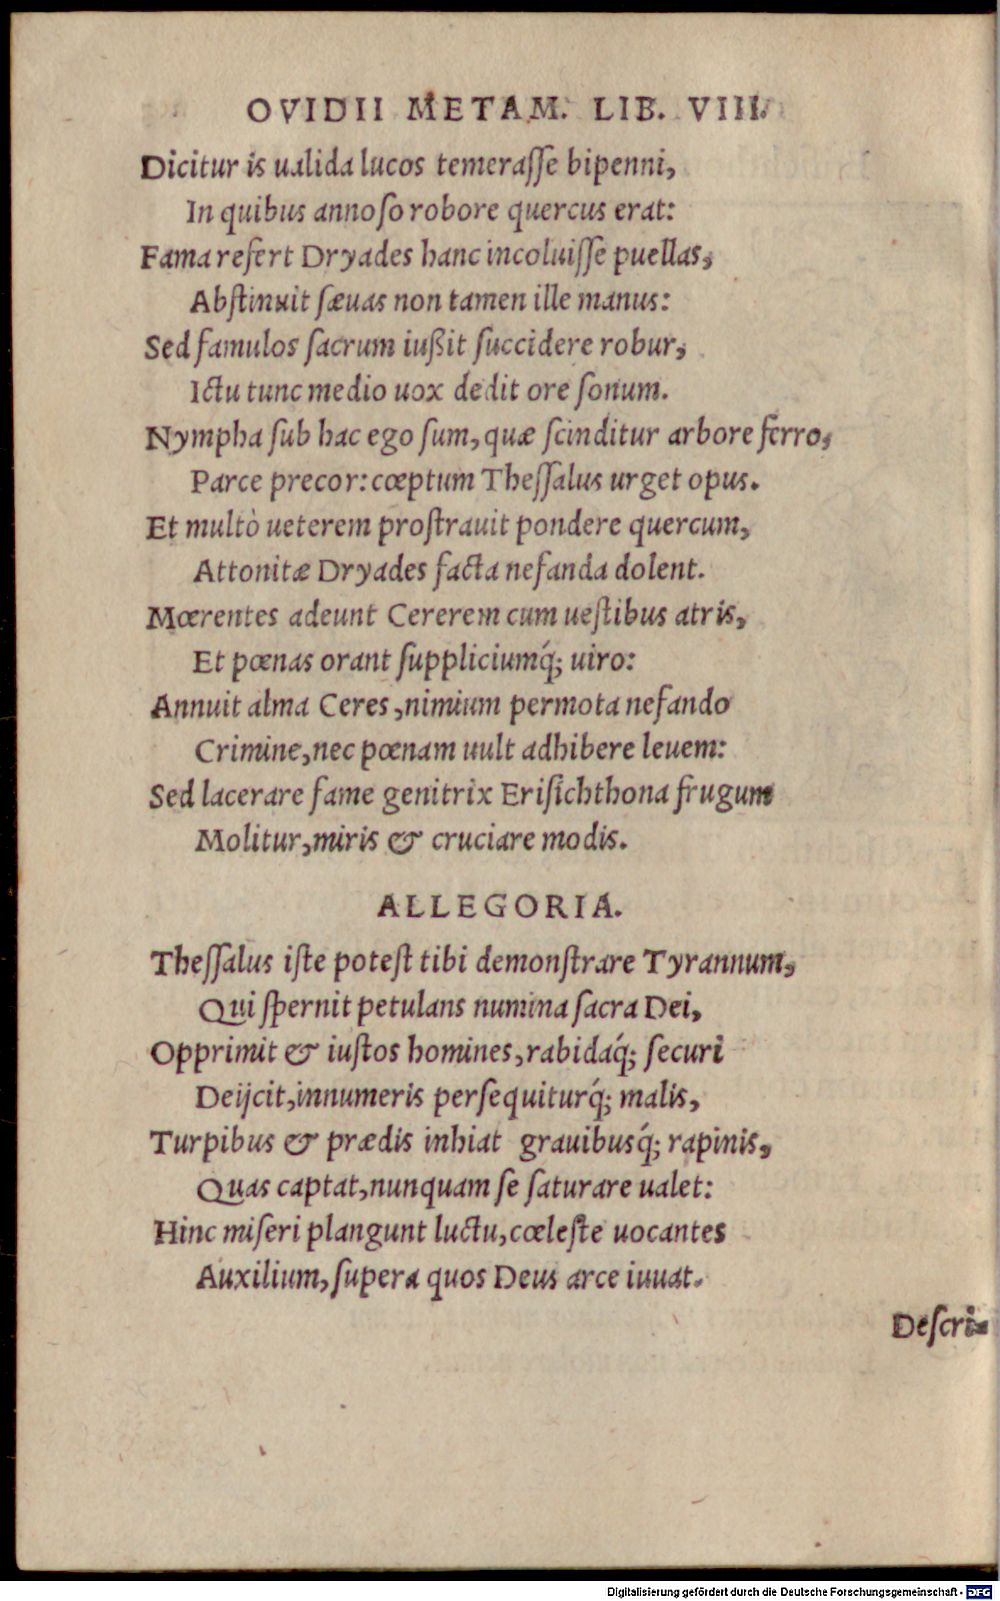 OVIDII METAM. LIB. VIII.
Dicitur is ualida lucos temerasse bipenni,
In quibus annoso robore quercus erat:
Fama refert Dryades hanc incoluisse puellas,
Abstinuit sæuas non tamen ille manus:
Sed famulos sacrum iußit succidere robur,
Ictu tunc medio uox dedit ore sonum.
Nympha sub hac ego sum, quæ scinditur arbore ferro,
Parce precor: cœptum Thessalus urget opus.
Et multò ueterem prostrauit pondere quercum,
Attonitæ Dryades facta nefanda dolent.
Mœrentes adeunt Cererem cum uestibus atris,
Et pœnas orant suppliciumq́; uiro:
Annuit alma Ceres, nimium permota nefando
Crimine, nec pœnam uult adhibere leuem:
Sed lacerare fame genitrix Erisichthona frugum
Molitur, miris & cruciare modis.
ALLEGORIA.
Thessalus iste potest tibi demonstrare Tyrannum,
Qui spernit petulans numina sacra Dei,
Opprimit & iustos homines, rabidaq́; securi
Deijcit, innumeris persequiturq́; malis,
Turpibus & prædis inhiat grauibusq́; rapinis,
Quas captat, nunquam se saturare ualet:
Hinc miseri plangunt luctu, cœleste uocantes
Auxilium, supera quos Deus arce iuuat.
Descri-
Digitalisierung gefördert durch die Deutsche Forschungsgemeinschaft - DFG